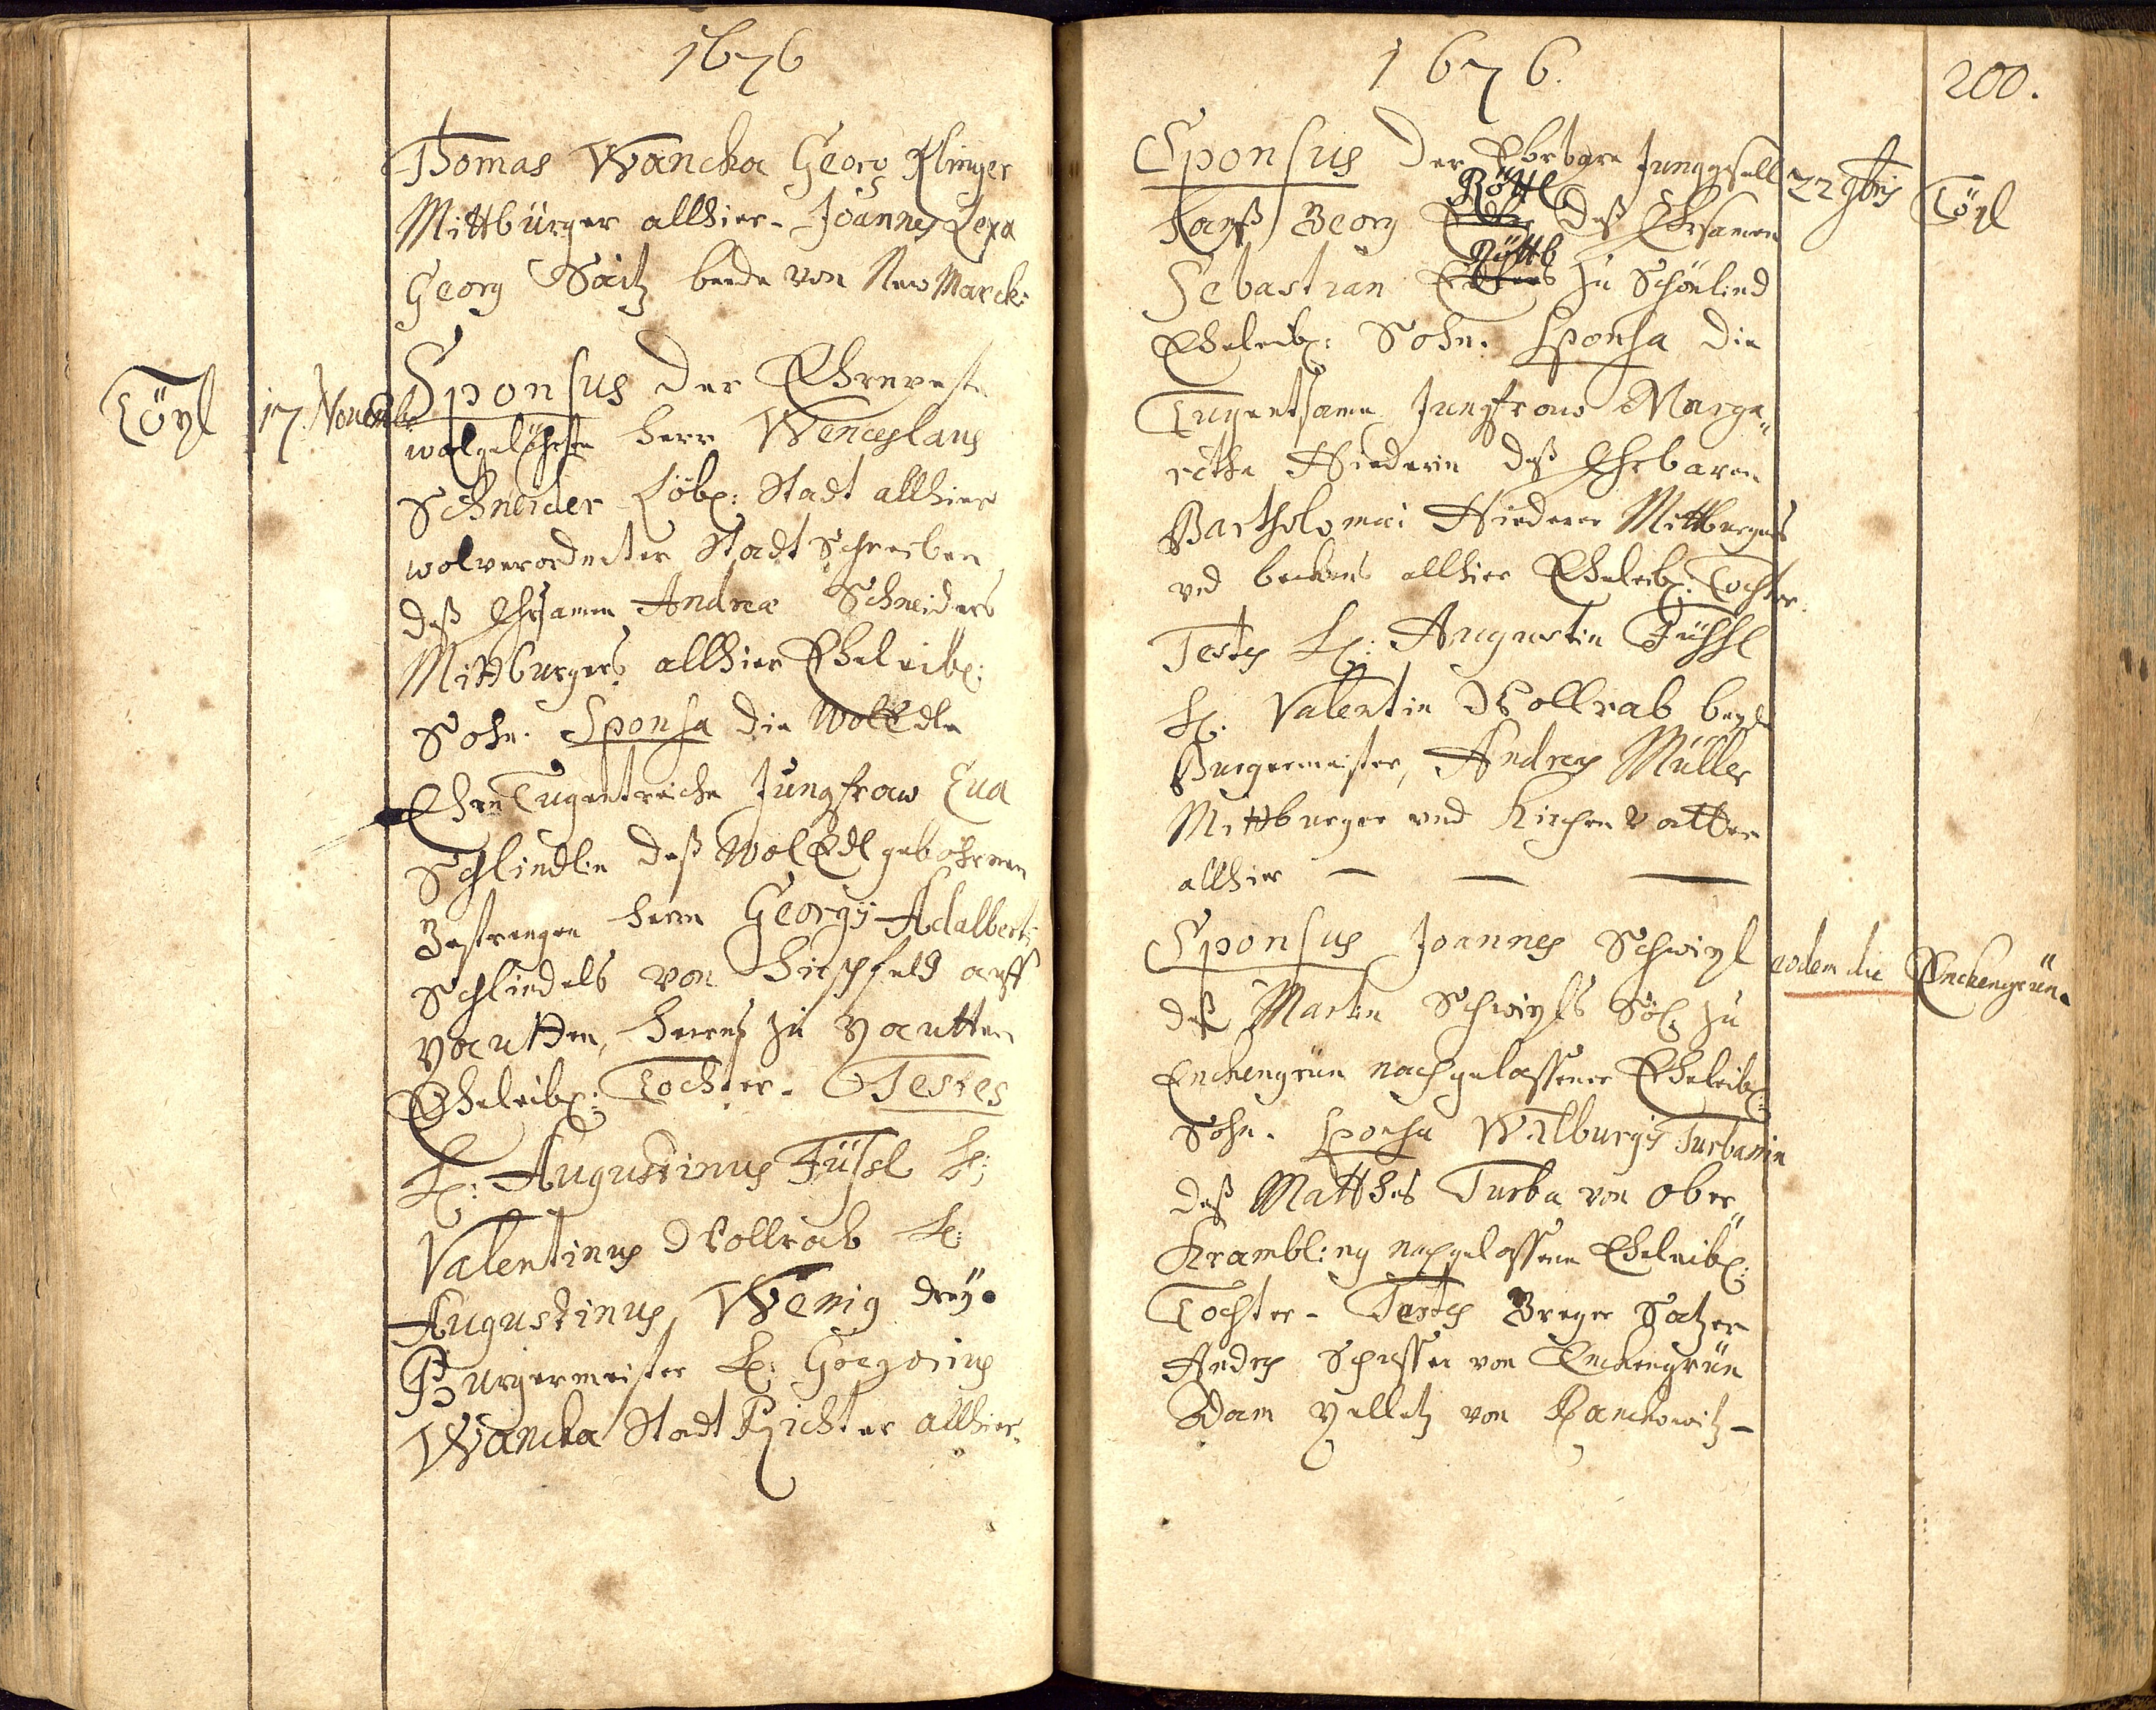 1676
Thomas Wancka Georg Klinger
Mittbürger allhier. Joannes Lexa
Georg Saitz beede von New Marck:
Töpl
17. Novemb:
Sponsus der Ehrnveste
wolgelehrte herr Wenceslaus
Schneider Löbl: Stadt allhier
wolverordneter Stadt Schreiber
deß Ehrsamen Andreæ Schneiders
Mittburgers allhier Eheleibl:
Sohn. Sponsa die WolEdle
EhrnTugentreiche Jungfraw Eua
Schliedlin deß WolEdl gebohrnen
Gestrengen herrn Georgij Adalberti
Schliedels von Hirschfeld auff
herrns zu
Eheleibl: Tochter. Testes
H: Augustinus Füssl H:
Valentinus Wollrab H:
Augustinus Wenig drey
Burgermeister H: Gregorius
Wancka Stadt Richter allhier.
1676.
200.
Sponsus Der Ehrbare Junggesell
22 9bris
Töpl
Röttl
Hanß Georg deß Ehrsamen
Röttls
Sebastian zu Schönlind
Eheleibl: Sohn. Sponsa die
Tugentsame Jungfraw Marga„
retha Hiederin deß Ehrbaren
Bartholomæi Hieders Mittburgers
vnd beckens allhier Eheleibl: Tochter.
Testes H: Augustin Füssl
H: Valentin Wollrab beyde
Burgermeister, Andreas Müller
Mittburger vnd Kirchen Vatter
allhier — — —
Sponsus Joannes Schwigl
eodem die
Enckengrün.
deß Martin Schwigls Sel: zu
Enckengrün nachgelassener Eheleibl:
Sohn. Sponsa Walburgis Turbanin
deß Matthes Turba von Ober„
Krambling nachgelassene Eheleibl:
Tochter. Testes Greger Satzer
Andres von Enckengrün
Adam von Ranckowitz —